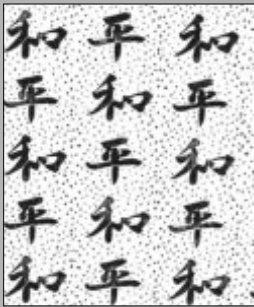 和 平 和
平 和 平
和 平 和
平 和 平
和 平 和